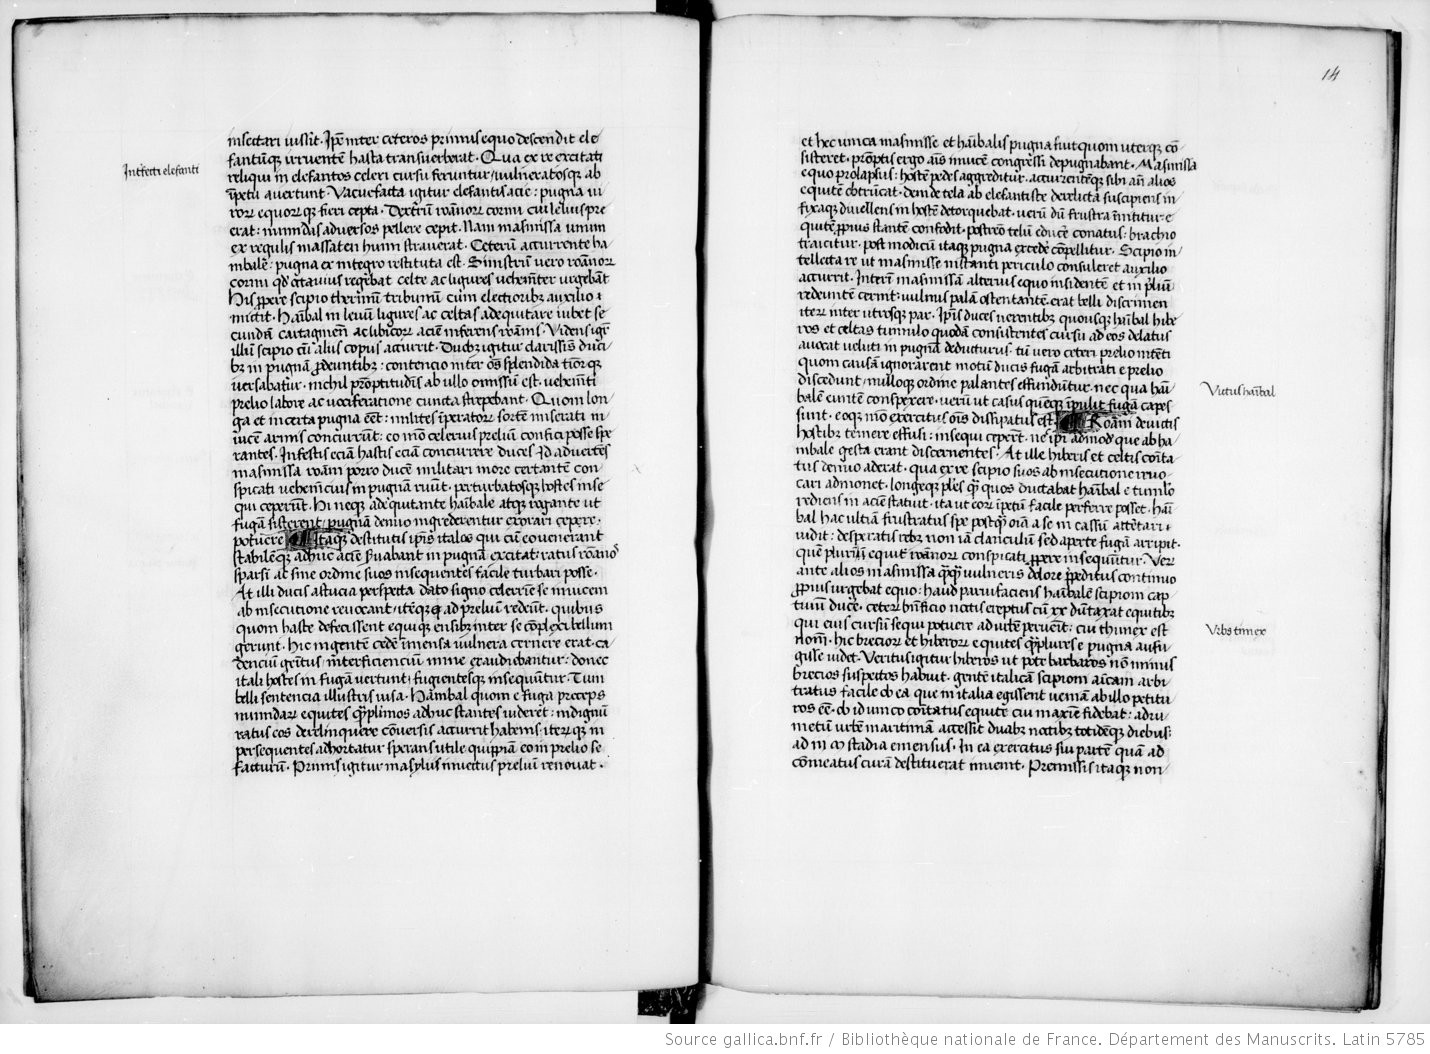 insectari iussit. Ipse inter ceteros primus equo descendit ele
fantūq̨ irruentē hasta transverberat. Qua ex re excitati
reliqui in elefantos celeri cursu feruntur: vulneratosq̨ ab
īpetu avertunt. Vacuefacta igitur elefantis acie: pugna vi
rorꝝ equorꝝq̨ fieri cepta. Dextrū roānorꝝ cornu cui lelius pre
erat: numidas adversos pellere cepit. Nam masinissa unum
ex regulis massaten humi straverat. Ceterū accurrente ha
nibale: pugna ex integro restituta est. Sinistrū vero roānorꝝ
cornu qd' octavius regebat celte ac ligures vehemēter urgebant
His p̱pere scipio thermū tribunū cum electioribꝫ auxilio
mictit. Hānibal in levum ligures ac celtas adequitare iubet se
cundā cartaginēꝝ ac libicorꝝ aciē inferens roānis. Videns igr̄
illū scipio cū aliis copiis accurrit. Duobꝫ igitur clarissimis duci
bꝫ in pugnā p̱deuntibꝫ: contencio inter oēs splendida timorq̨
versabatur. nichil prōptitudinis ab ullo omissū est. vehemēti
prelio labore ac vociferatione cuncta strepebant. Quom lon
ga et incerta pugna eēt: milites īperatorꝝ sortē miserati in
invicem armis concurrūt: eo mō celerius preliū confici posse spe
rantes. Infestis eciā hastis eciā concurrere duces. Id advertēs
masinissa roām porro ducē militari more certantē con
spicati vehemēcius in pugnam ruūt. perturbatosq̨ hostes inse
qui ceperūt. Hi neq̨ adequitante hānibale atq̨ rogante ut
fugā sisterent, pugnā denuo ingrederentur exorari cepere
potuere Itaq̨ destitutis ip̄is italos qui cū eo venerant
stabilēq̨ adhuc aciē s̄vabant in pugnā excitat: ratus roāno
sparsi ac sine ordine suos insequentes facile turbari posse.
At illi ducis astucia perspecta dato signo celeriē se invicem
ab insecutione revocant: itēq̨ ad preliū redeūt. quibus
quom haste defecissent equiq̨ ensibꝫ inter se cōplexi bellum
gerunt. hic ingentē cedē īmensa vulnera cernere erat. ca
denciū gēitus interficienciū mine exaudiebantur: donec
itali hostes in fugam vertunt: fugientesq̨ insequūtur. Tum
belli sentencia illustris visa. Hānibal quom e fuga preceps
numidarꝝ equites q̄plimos adhuc stantes videret: indignū
ratus eos derelinquere cōversis accurrit habenis. iterꝝq̨ in
persequentes adhortatur sperans utile quippiā eom prelio se
facturū. Primis igitur masylus īvectus preliū renovat.
Int̄fecti elefanti
14
et hec unica masinisse et hānibalis pugna fuit quom uterq̨ cō
sisteret. prōptis ergo aīs invicē congressi depugnabant. Masinissa
equo prolapsus: hostē pedes aggreditur. accurrentēq̨ sibi an̄ alios
equitē obtrūcat. deinde tela ab elefantiste derelicta suscipiens in
fixaq̨ divellens in hostē detorquebat. verū dū frustra īnititur e
quitē p̱pius stantē confodit. postremo telū educē conatus: brachio
traicitur. post modicū itaq̨ pugna excedē cōpellitur. Scipio in
tellecta re ut masinisse instanti periculo consuleret auxilio
accurrit. Interim masinissā alterius equo insidentē et in preliū
redeuntē cernit: vulnus palā ostentantē. erat belli discrimen
iterꝝ inter utrosq̨ par. Ip̄is duces verentibꝫ quousq̨ hānibal hibe
ros et celtas tumulo quodā consistentes cursu ad eos delatus
avocat veluti in pugnā deducturus. tū vero ceteri prelio intēti
quom causā ignorarent motū ducis fugā arbitrati e prelio
discedunt, nulloq̨ ordine palantes effundūtur. nec qua hāni
balē euntē conspexere. verū ut casus quēq̨ īpulit fugā capes
sunt. eoq̨ mō exercitus oīs dissipatus est Roāni devictis
hostibꝫ temere effusi: insequi cepert̄. ne ip̄i admodū que ab ha
nibale gesta erant discernentes. At ille hiberis et celtis cōita
tus denuo aderat. qua ex re scipio suos ab insecutione revo
cari admonet. longeq̨ ples q̄ quos ductabat hānibal e tumulo
rediens in aciē statuit. ita ut eorꝝ īpetū facile perferre posset. hāni
bal hac ultiā frustratus spe postq̄ oīa a se in cassū attētari
vidit: desperatis rebꝫ non iā clanculū sed aperte fugā arripit.
quē plurimi equitꝝ roānorꝝ conspicati p̱pere insequūtur. Ver
ante alios masinissa q̄q̄ vulneris dolore p̱peditus continuo
p̱pius urgebat equo: haud parvi faciens hānibalē scipioni cap
tivū ducē. ceterꝝ bn̄ficio noctis ereptus cū xx dūtaxat equitibꝫ
qui eius cursū sequi potuere ad urbē pervēit: cui thinex est
nom̄. hic breciorꝝ et hiberorꝝ equites q̄plures e pugna aufu
gisse videt. Veritus igitur hiberos ut pote barbaros nō minus
brecios suspectos habuit. gentē italicā scipioni amicam arbi
tratus facile ob ea que in italia egissent veniam ab illo petitu
ros eē. ob id unico comitatus equite cui maxīe fidebat: adru
metum urbē maritimā accessit duabꝫ noctibꝫ totidēq̨ diebus:
ad III ꝏ stadia emensus. In ea exercitus sui partē quā ad
cōmeatus curā destituerat invenit. Premissis itaq̨ non
Victus hānibal
Vrbs tinex
Source gallica.bnf.fr / Bibliothèque nationale de France. Département des Manuscrits. Latin 5785